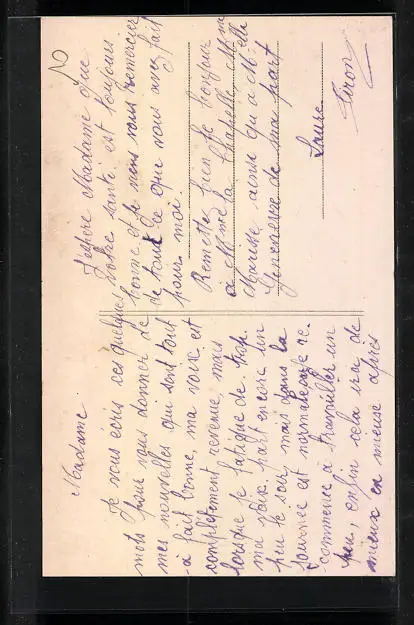 Madame
Je vous écris ces quelques
mots pour vous donner de
mes nouvelles qui sont tout
à fait bonne, ma voix est
complètement revenue mais
lorsque je fatigue de trop.
ma voix part encore un
peu le soir, mais dans la
journée est normale je re
commence à travailler un
peu, enfin cela ira de
mieux en mieux après
J'espère Madame que
votre santé est toujours
bonne et je viens vous remercier
de tout ce que vous avez fait
pour moi.
Remettez bien le bonjour
à Mme la Chapelle Mme
Marise ainsi qu'à Melle
Geneviève de ma part
Laure